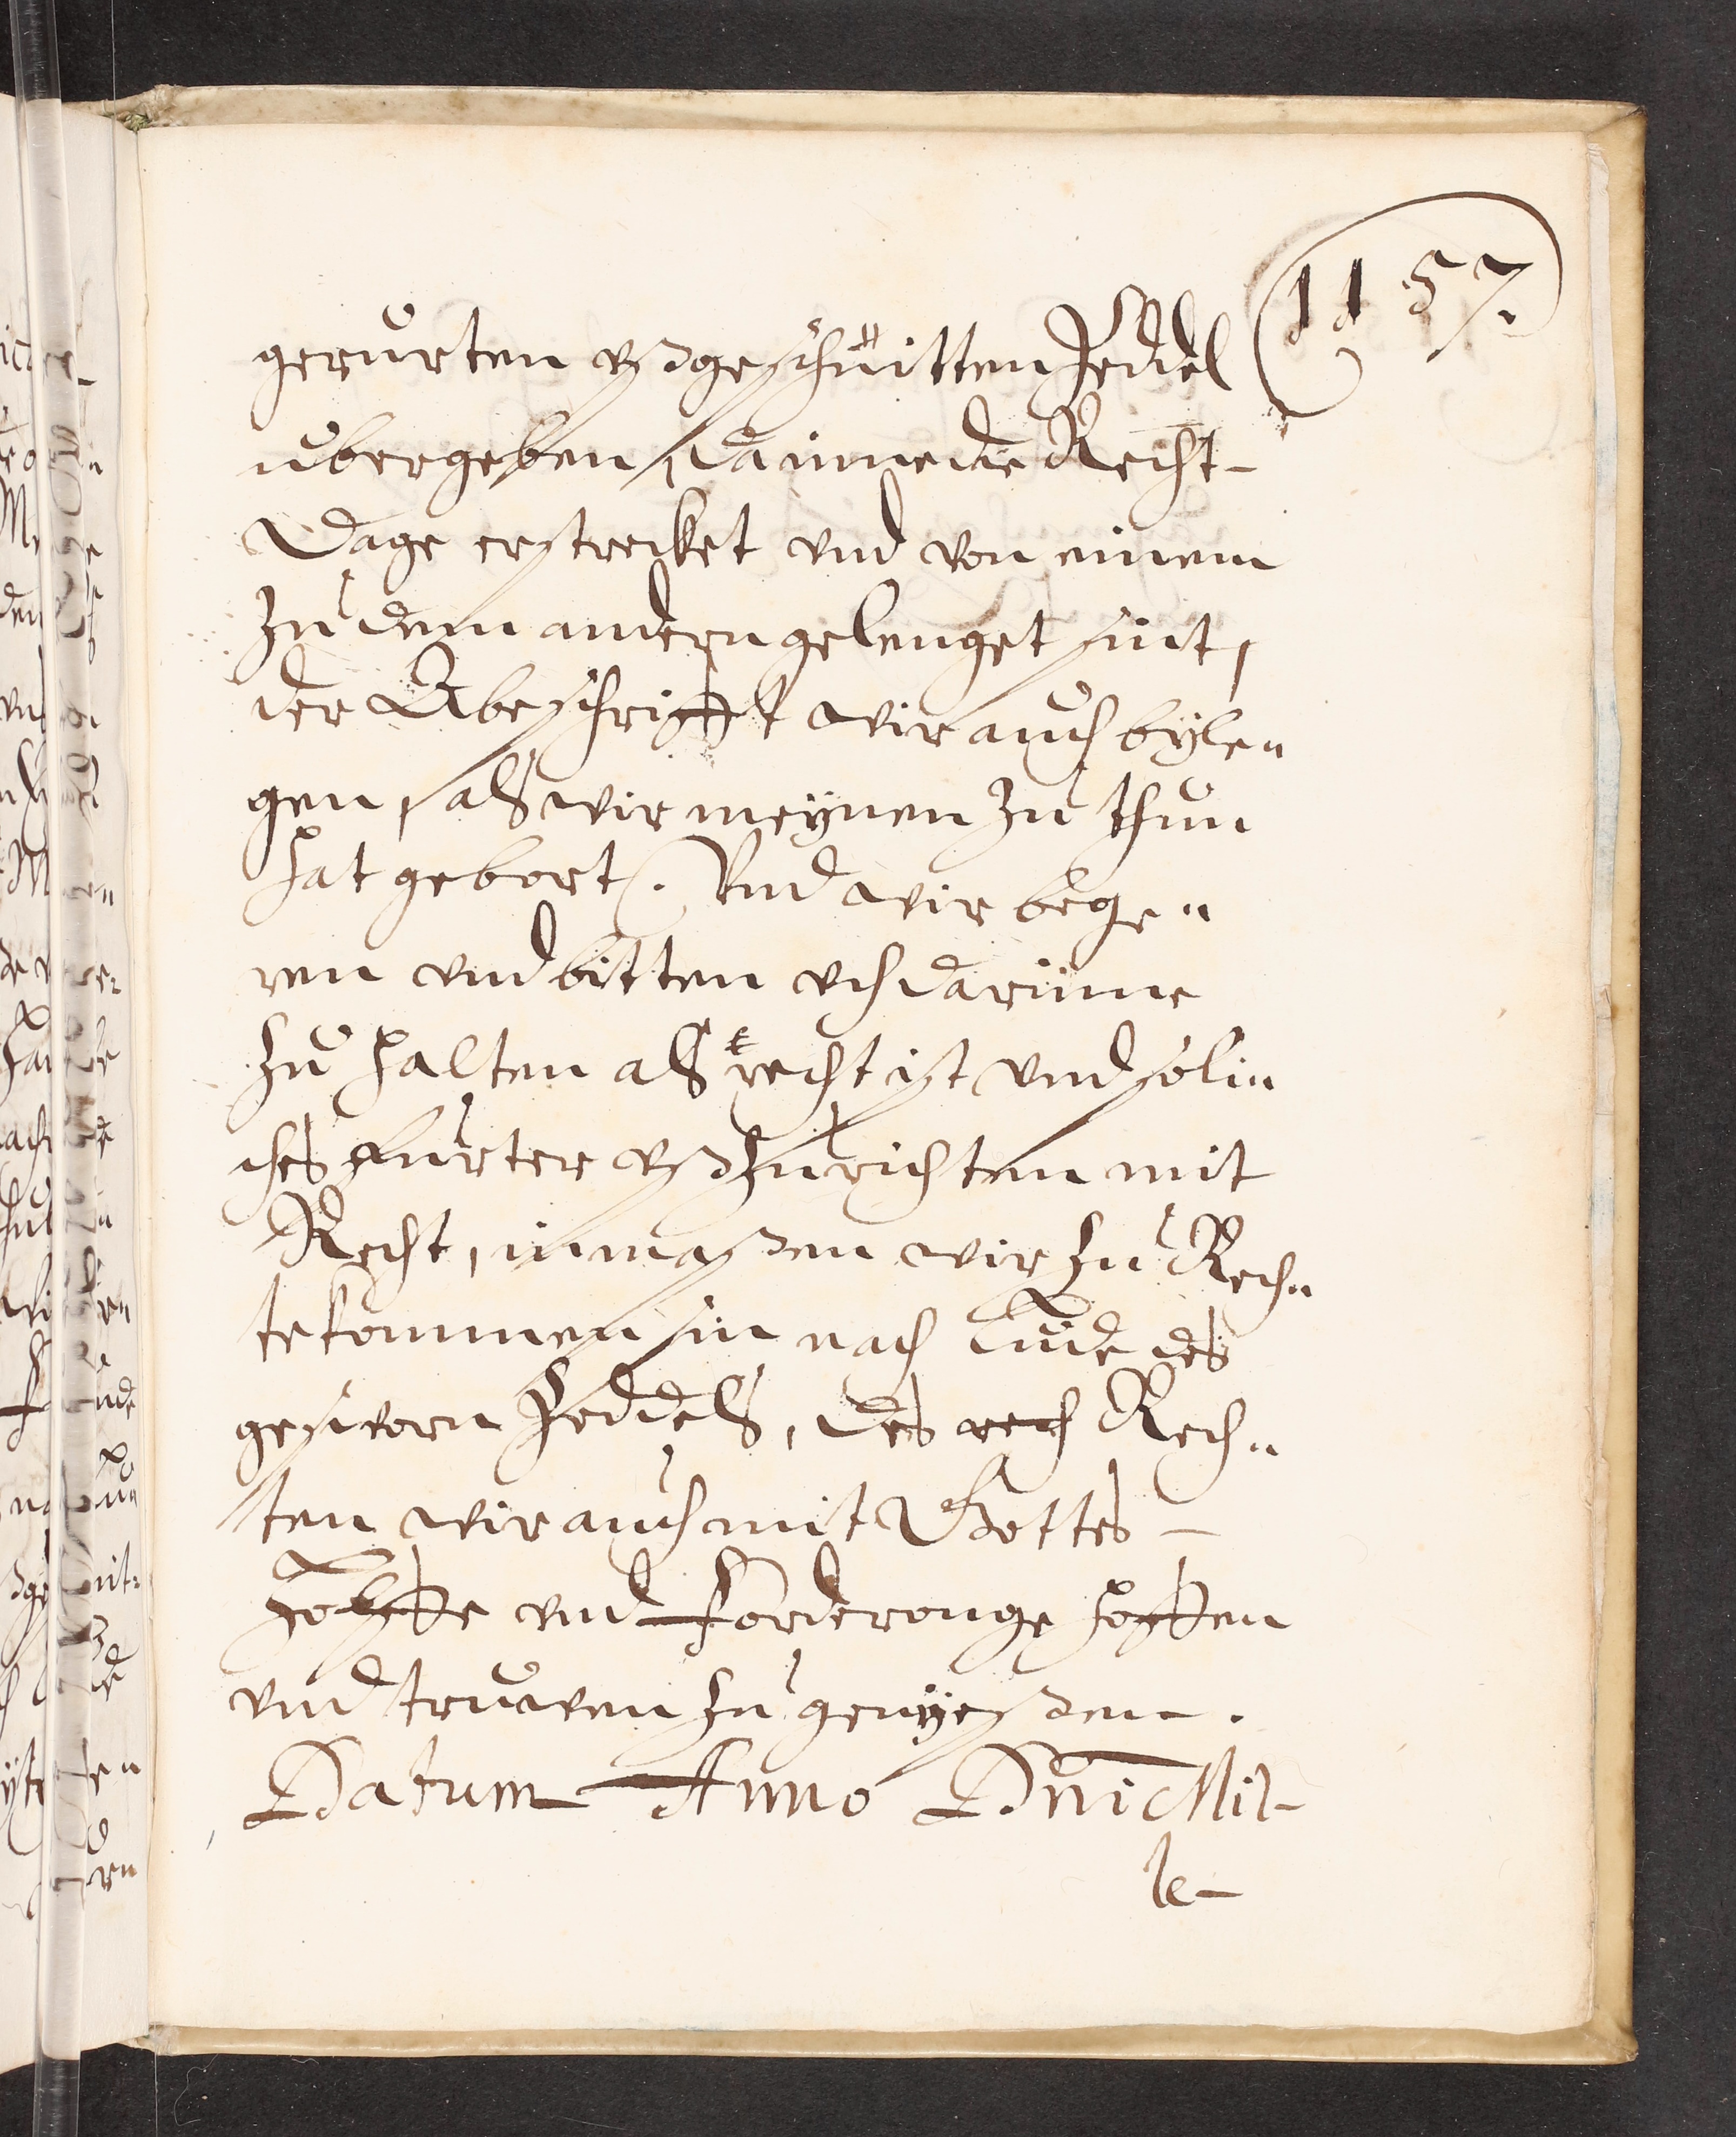 1157.
gerurten vßgeschnitten Zeddel
ubergeben, da inne die Recht-
Dage erstrecket vnd von einem
zu dem andern gelenget sint,
der Abeschrifft wir auch byle„
gen, als wir meynen zu thun
hat gebort. Vnd wir bege„
ren vnd bitten vch darume
zu halten als recht ist vnd soli„
ches furter vßzurichten mit
Recht, inmaßen wir zu Rech„
te kommen sin nach Lude des
geswornn Zeddels, des rech Rech„
ten wir auch mit Gottes -
Holffe vnd Forderonge hoffen
vnd truwen zu genyeßen.
Datum Anno Dni Mil-
le-